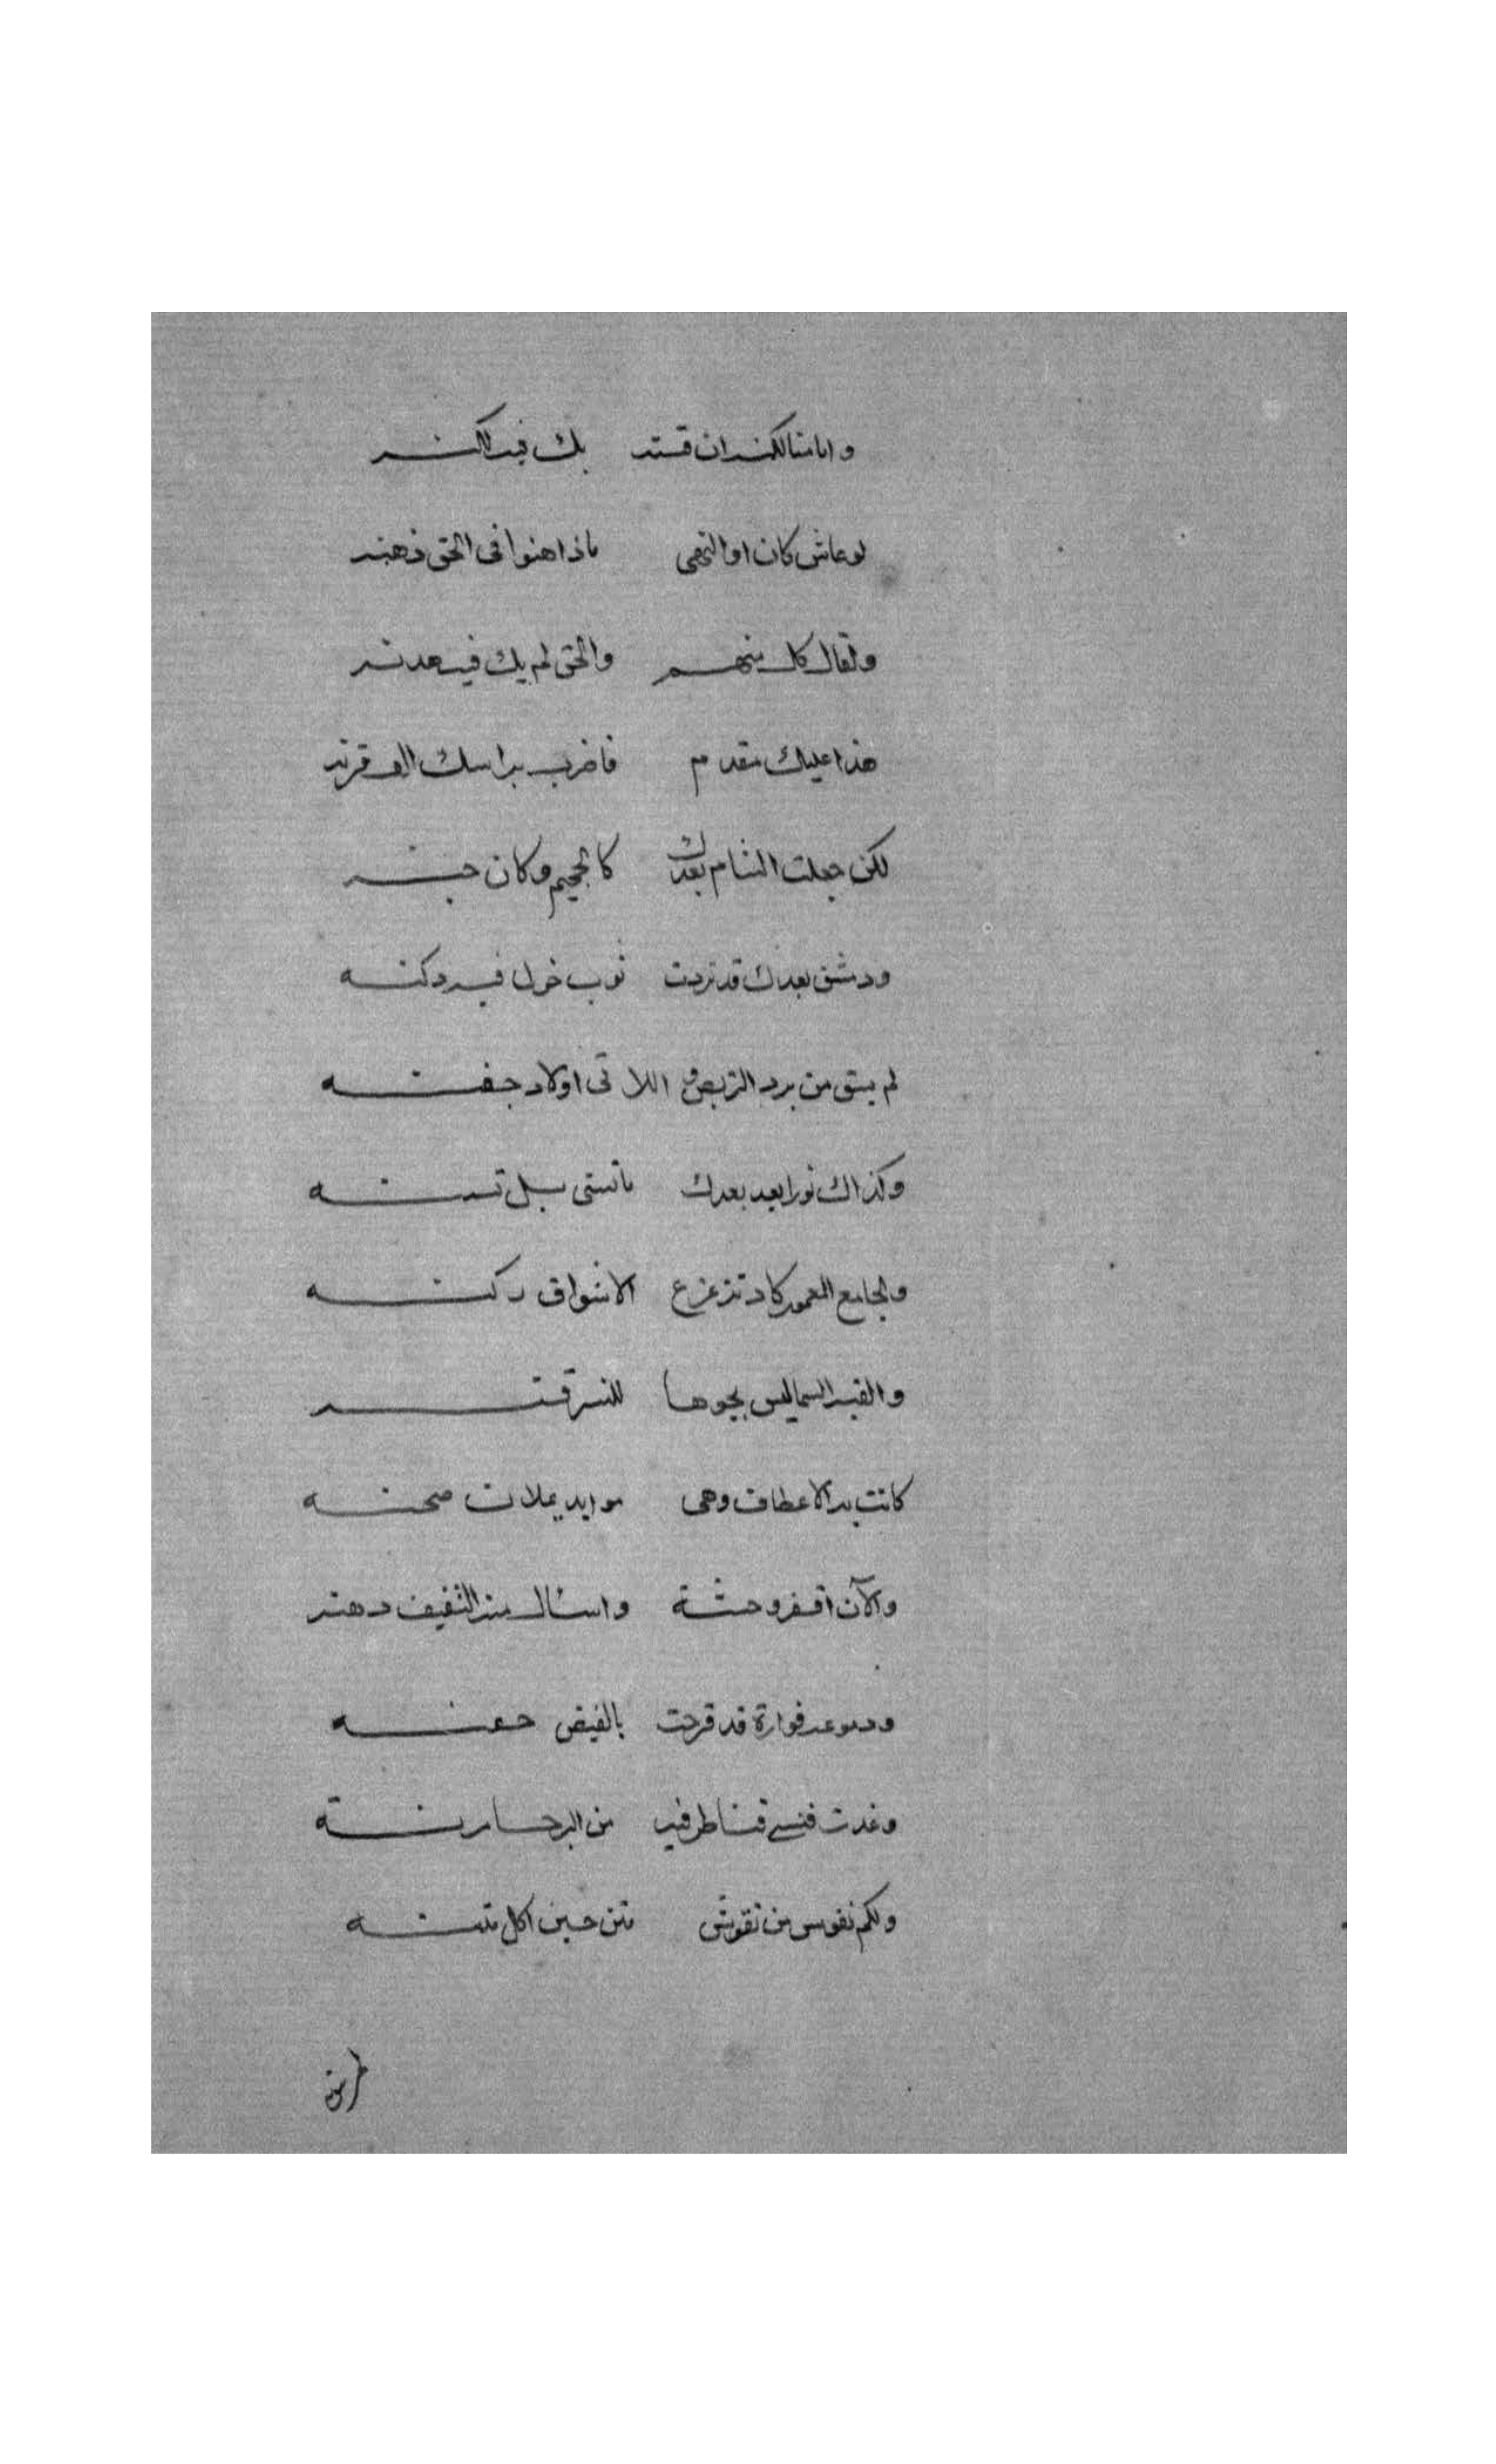 وامامنا لكنه ان قسته بك فيه لكنه
لو عاش كان اولو النهى ما ذاهنوا فى الحق ذهنه
ولقال كل منهم والحق لم يك فيه هدنه
هذا عليك مقدم فاضرب براسك الف قرنه
لكن جعلت الشام بعدك كالجحيم وكان جنه
ودمشق بعدك قد تردت ثوب خول فيه دكنه
لم يبق من برد البريص اللاتى اولاد جفنه
وكذاك ثورا بعد بعدك ما تسنى بل تسنه
والجامع المعمور كاد تزعزع الاشواق ركنه
والقبه السما ليس بجوها للنسر قنه
كانت به الاعطاف وهى موايد يملان صحنه
والآن اقفر وحشة واسال منه الثفيف دهنه
ودموعه فوارة قد قرحت بالفيض جفنه
وغدت قسى قناطر فيه من البرحا مرنة
ولكم نفوس من نقوش